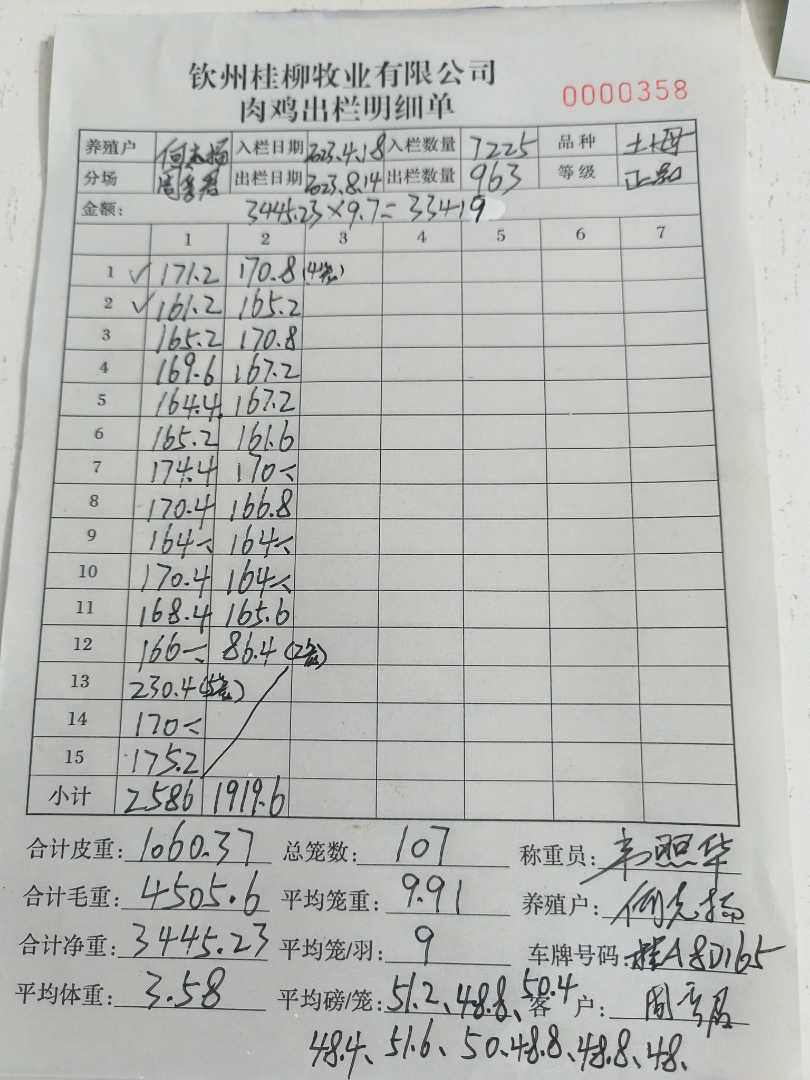 钦州桂柳牧业有限公司
肉鸡出栏明细单
0000358
养殖户 入栏日期 2023.4.18 入栏数量 7225 品种 土母
分场 出栏日期 2023.8.14 出栏数量 963 等级
金额: 3445.23×9.7=33419
1 2 3 4 5 6 7
1 ✓ 171.2 170.8 (4笼)
2 ✓ 161.2 165.2
3 165.2 170.8
4 169.6 167.2
5 164.4 167.2
6 165.2 161.6
7 174.4 170
8 170.4 166.8
9 164 164
10 170.4 164
11 168.4 165.6
12 166 86.4 (2笼)
13 230.4 (5笼)
14 170
15 175.2
小计 2586 1919.6
合计皮重: 1060.37 总笼数: 107 称重员: 韦照华
合计毛重: 4505.6 平均笼重: 9.91 养殖户:
合计净重: 3445.23 平均笼/羽: 9 车牌号码: 桂A8D165
平均体重: 3.58 平均磅/笼: 51.2、48.8、50.4 客户:
48.4、51.6、50、48.8、48.8、48、